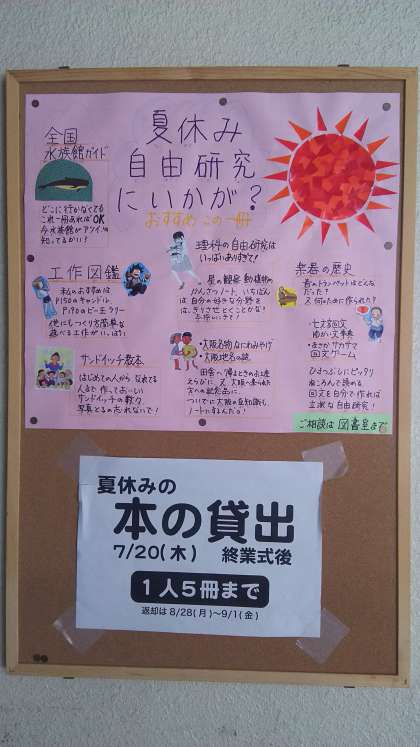 夏休み
自由研究
にいかが?
おすすめこの一冊
全国
水族館ガイド
どこに行かなくても
これ一冊あればOK
今水族館がアツイの
知ってるかい!
工作図鑑
私のおすすめは
P150のキャンドル
P190のビー玉
他にもつくり方簡単な
遊べる工作がいっぱい
サンドイッチ教本
はじめての人から なれてる
人まで 作っておーいし
サンドイッチの数々
写真とるの忘れないで!
理科の自由研究は
いっぱいありすぎて!
星の観察 動植物の
かんさつノート いちばん
は 自分の好きな分野を
は、きりさせとくことかな
・大阪名物 なにわみやげ
・大阪地名の謎
田舎へ帰るときのお遣
ついでに 大阪の豆知識も
楽器の歴史
昔のトランペットはどんな
だった?
又 何のために作られた?
・七文字回文
ゆかい文事典
・まさかサカサマ
回文ゲーム
ひまつぶしにピッタリ
ねころんで読める
回文を自分で作れば
立派な自由研究!
ご相談は 図書室まで
夏休みの
本の貸出
7/20(木) 終業式後
1人5冊まで
返却は8/28(月)〜9/1(金)